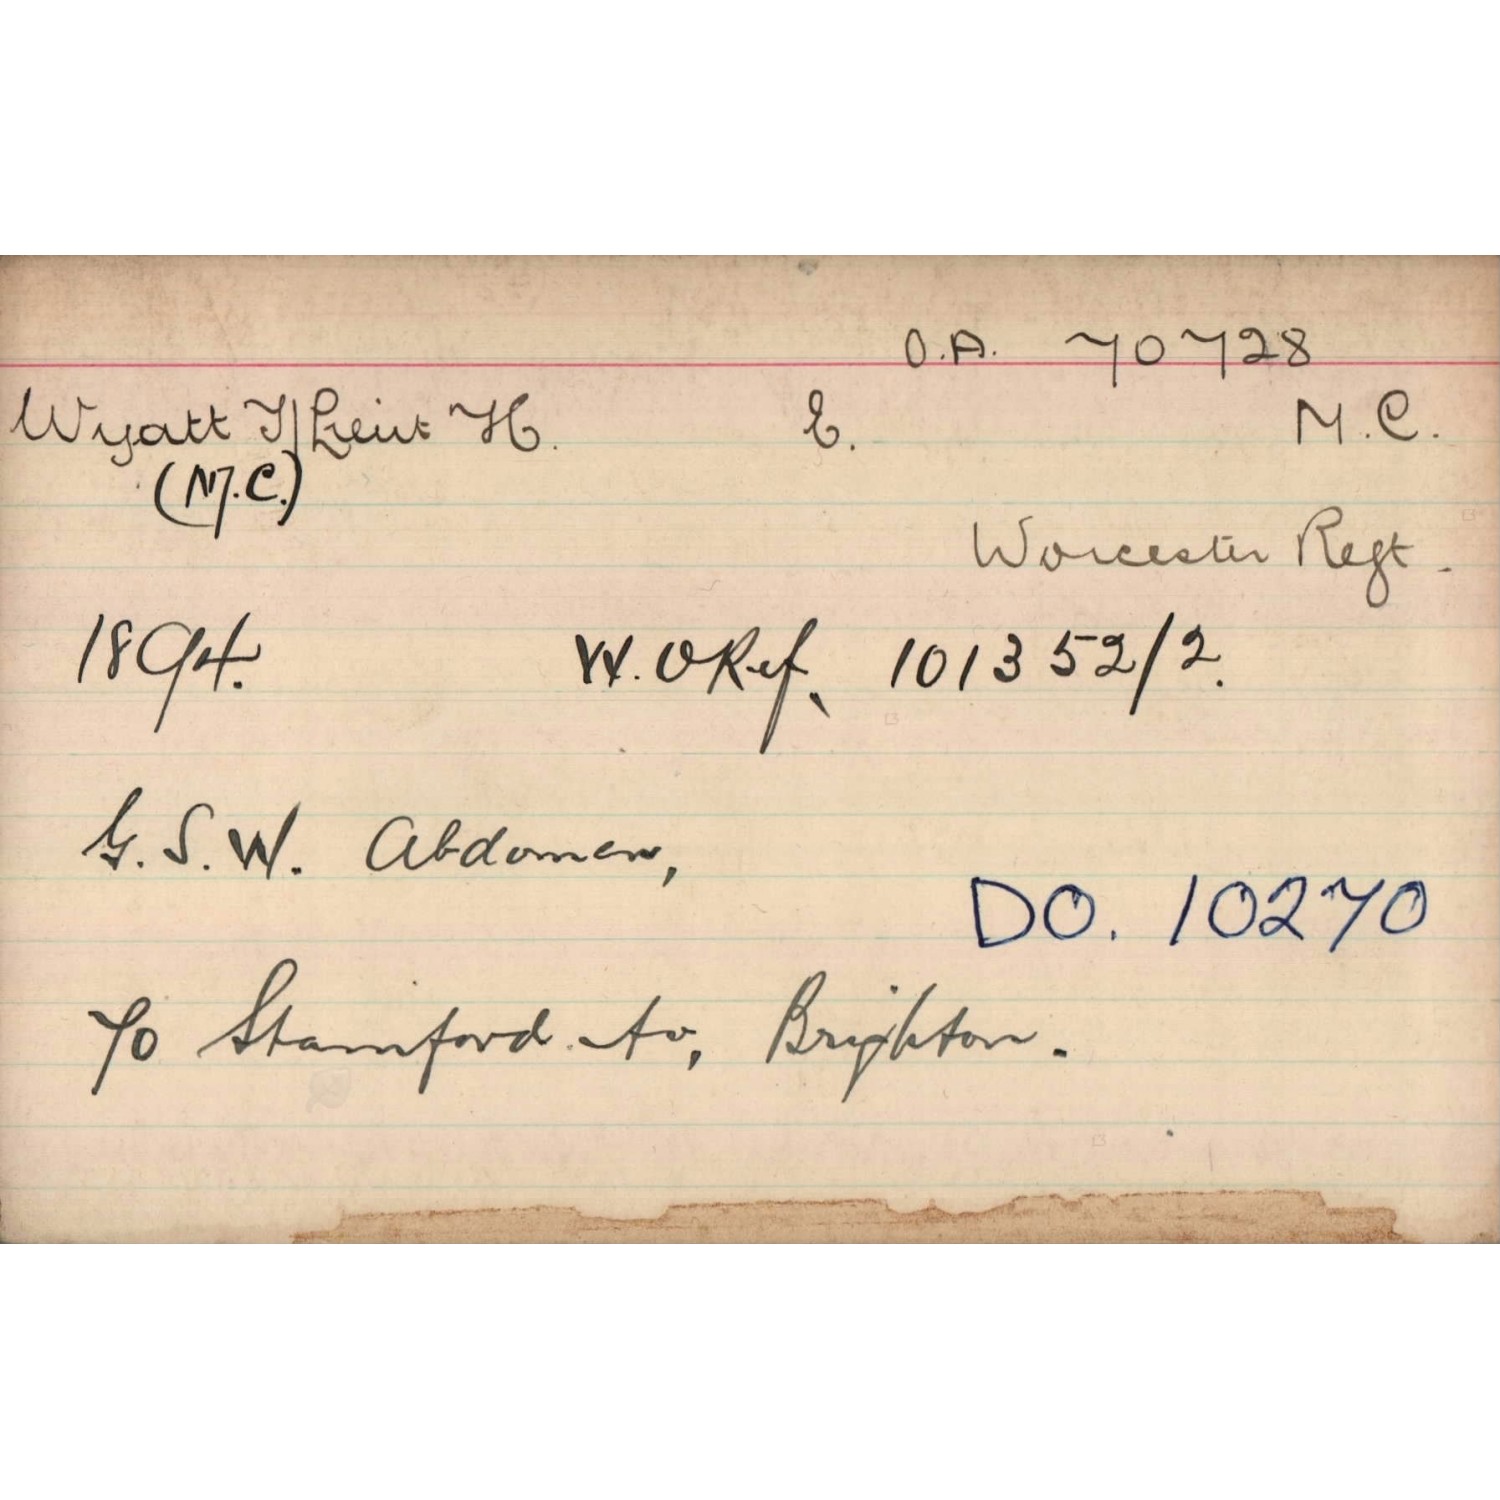 O.A. 70728
Wyatt T/Lieut H. E. M.C.
(M.C.)
Worcester Regt.
1894. W.O Ref, 101352/2.
G.S.W. Abdomen,
DO. 10270
70 Stamford Av, Brighton.